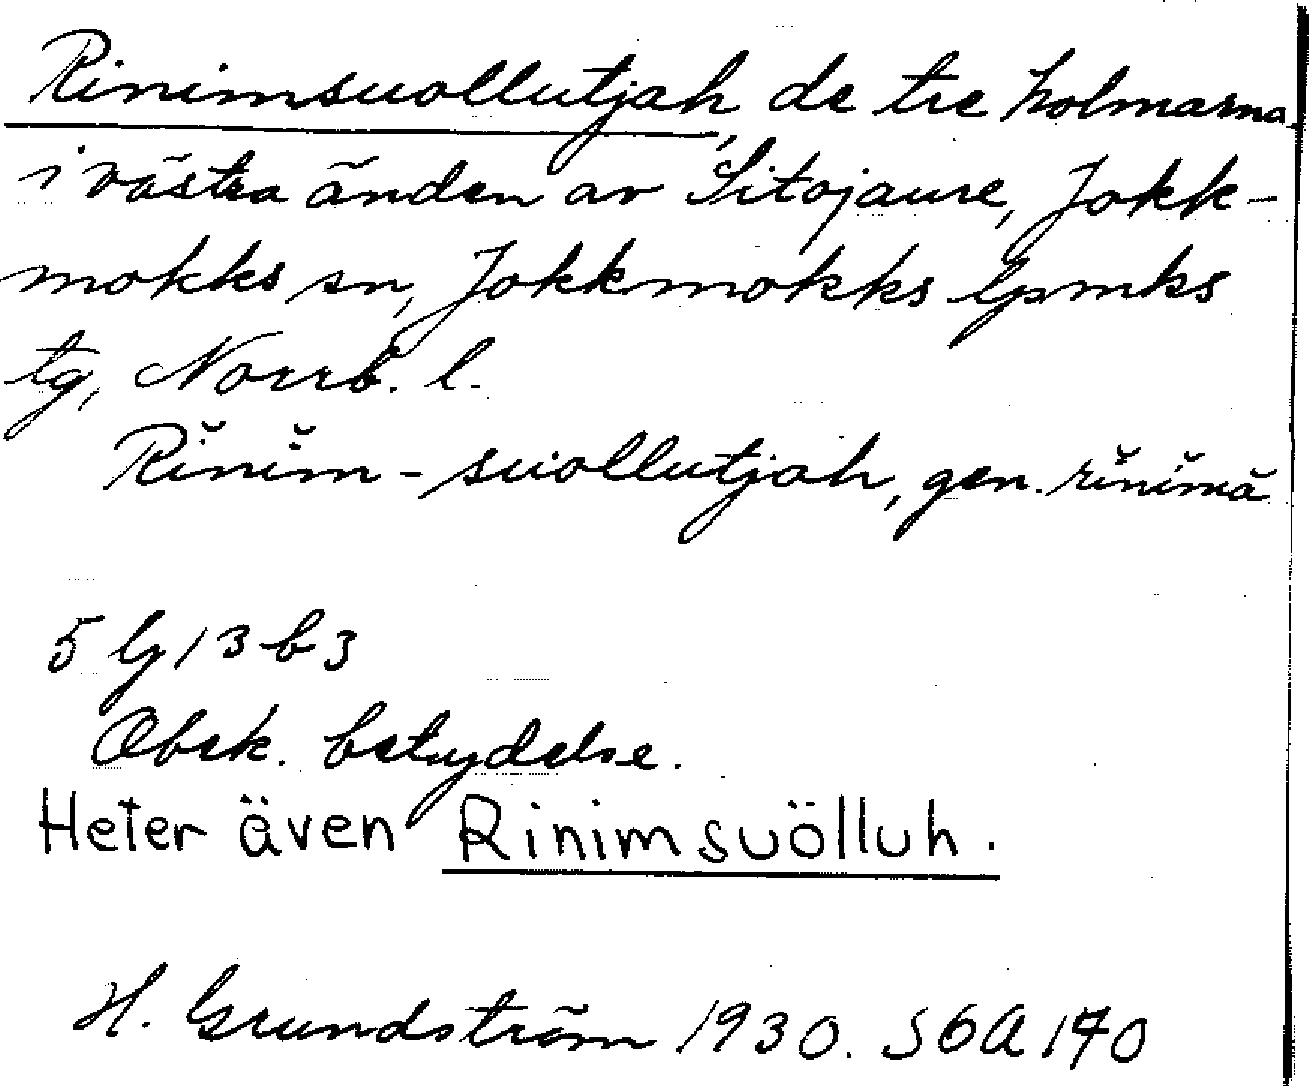 Rinimsuollutjah, de tre holmarna
i västra änden av Sitojaure, Jokk-
mokks sn, Jokkmokks lpmks
tg, Norrb. l.
Rĭnĭm-suollutjah, gen. rĭnĭmă
5 G 13 b 3
Obek. betydelse.
Heter även Rinimsuölluh.
H. Grundström 1930. S6A 170